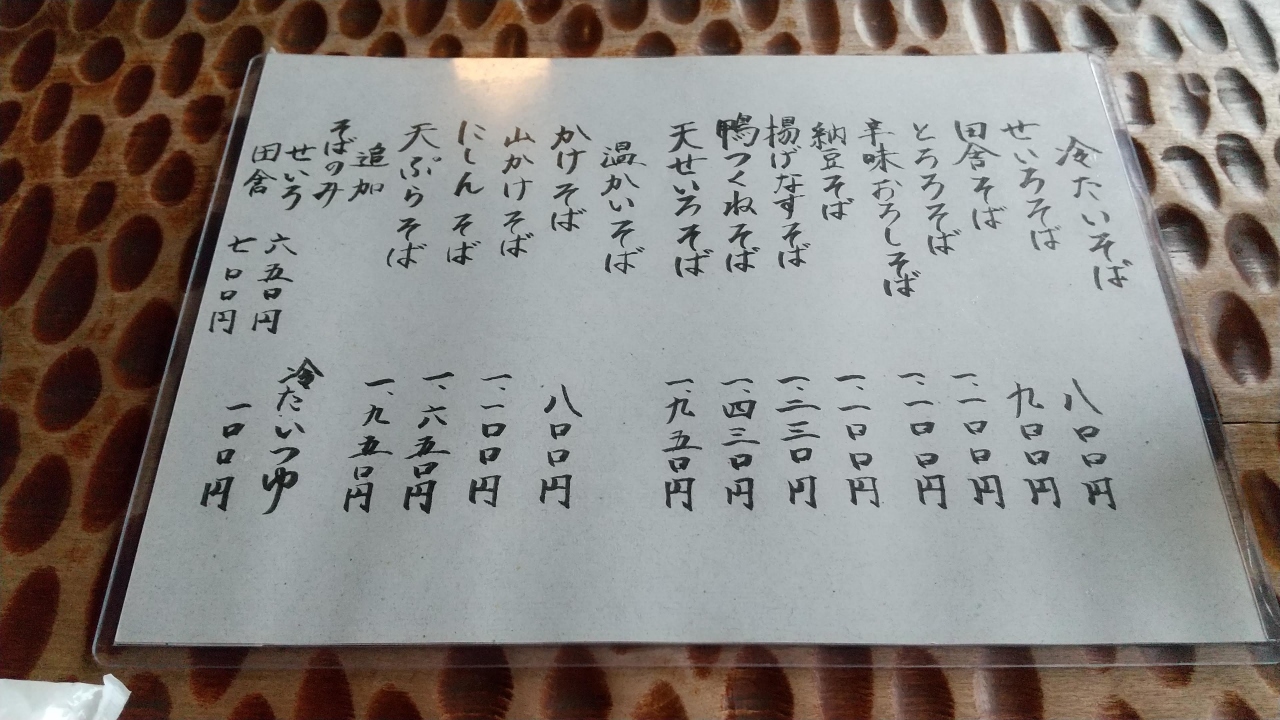 冷たいそば
せいろそば 八〇〇円
田舎そば 九〇〇円
とろろそば 一、一〇〇円
辛味おろしそば 一、一〇〇円
納豆そば 一、一〇〇円
揚げなすそば 一、三三〇円
鴨つくねそば 一、四三〇円
天せいろそば 一、九五〇円
温かいそば
かけそば 八〇〇円
山かけそば 一、一〇〇円
にしんそば 一、六五〇円
天ぷらそば 一、九五〇円
追加
そばのみ
せいろ 六五〇円
田舎 七〇〇円
冷たいつゆ
一〇〇円